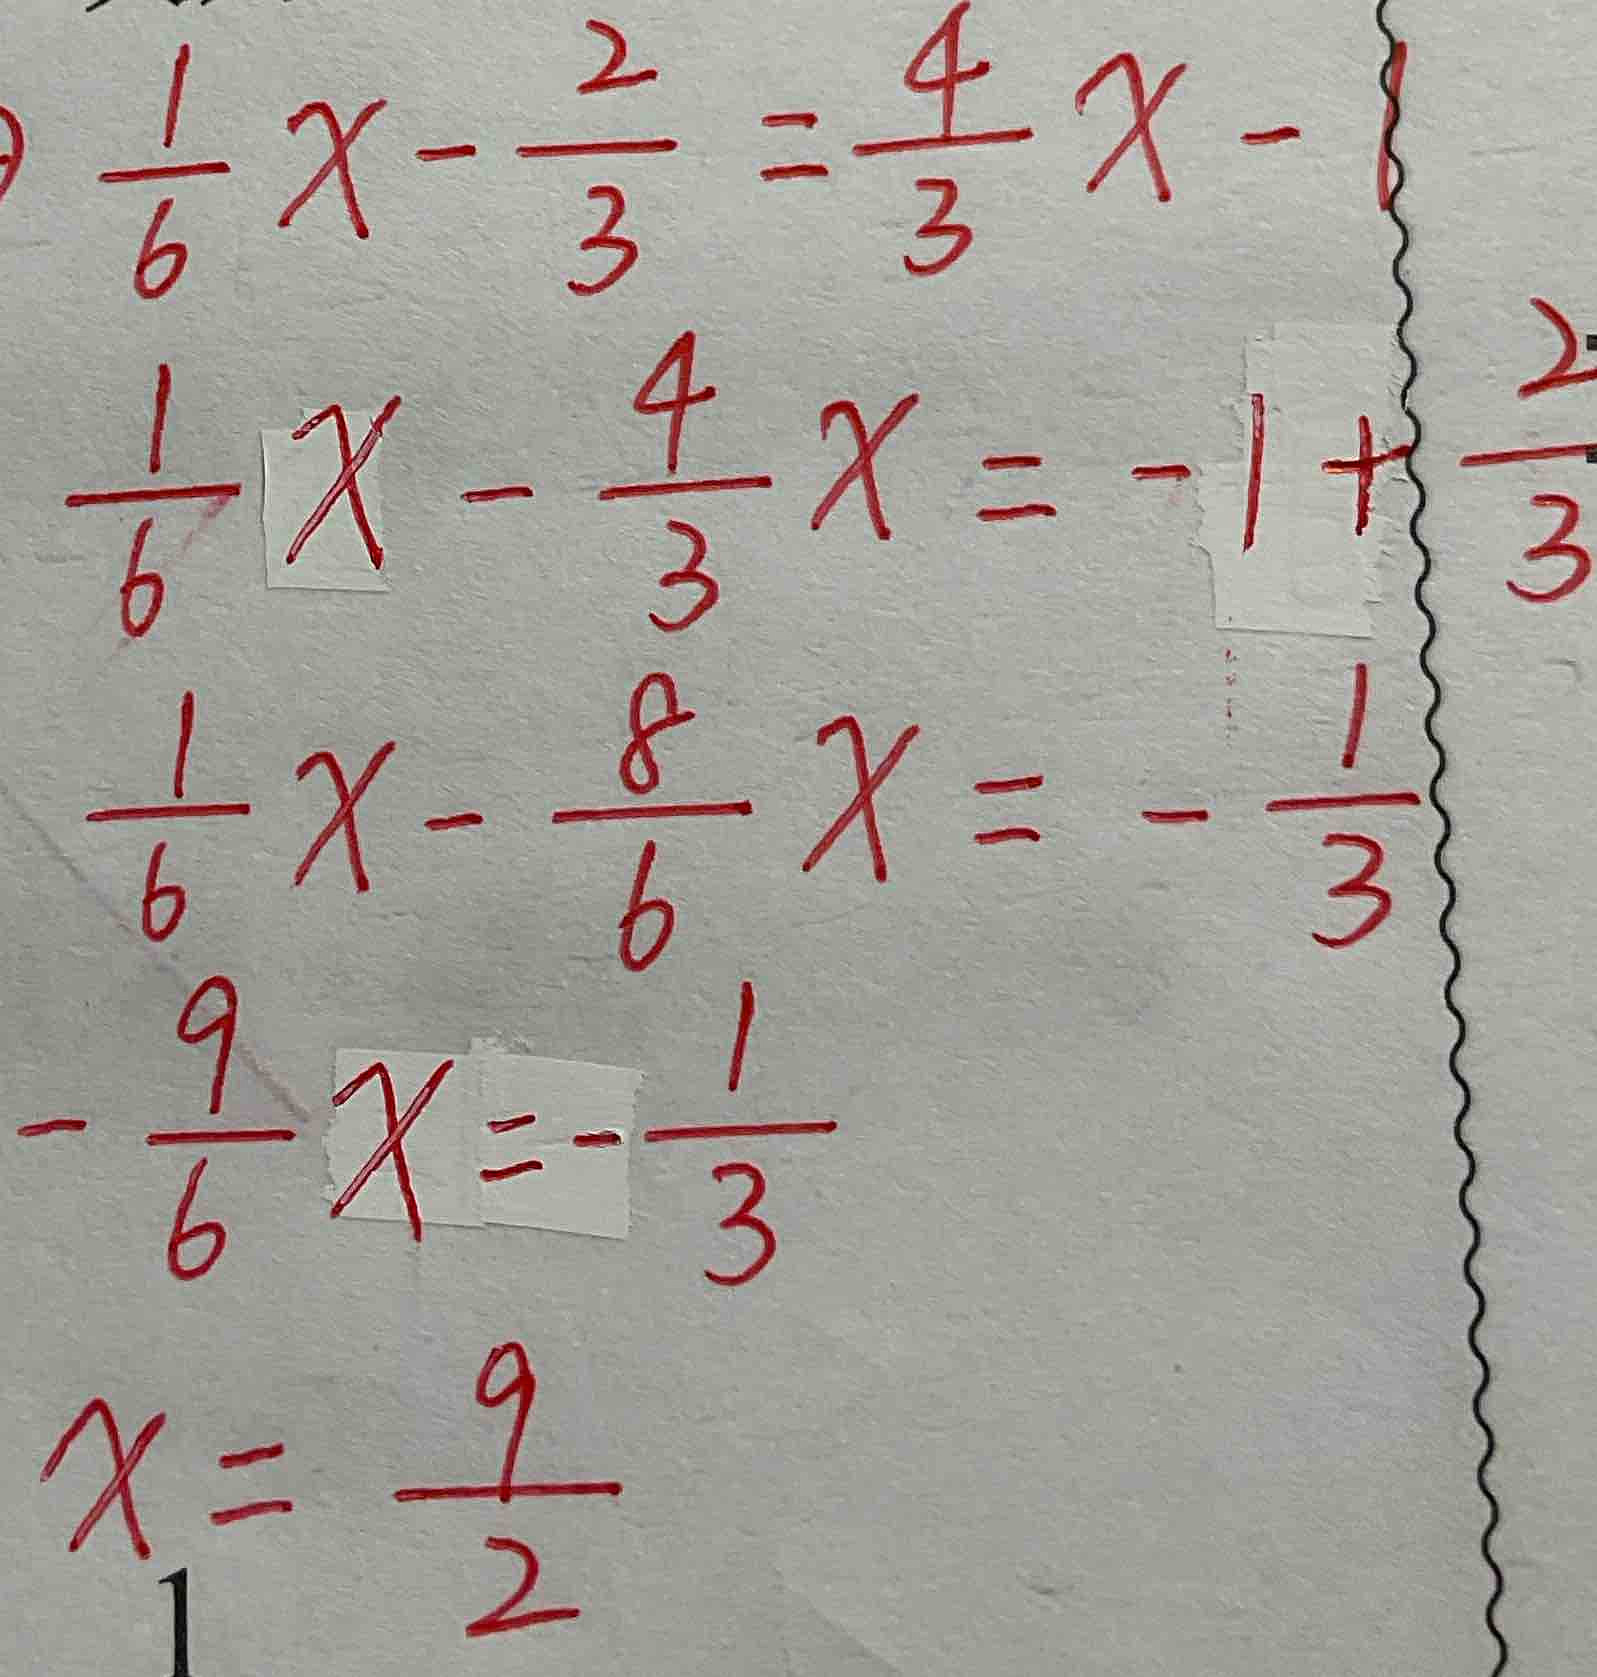 1/6 x - 2/3 = 4/3 x - 1
1/6 x - 4/3 x = -1 + 2/3
1/6 x - 8/6 x = - 1/3
- 9/6 x = - 1/3
x = 9/2
1